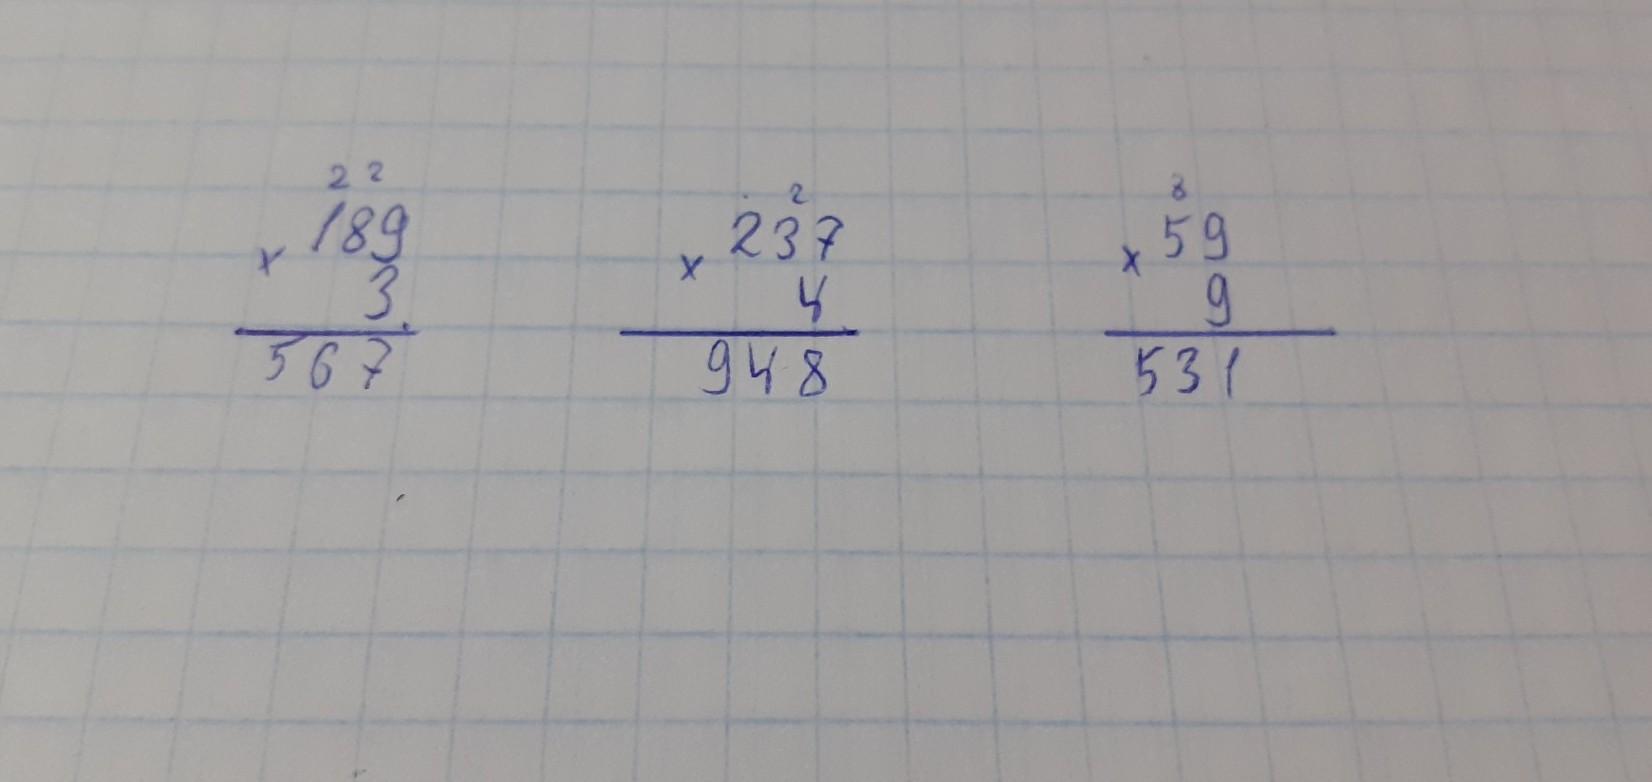 2 2 2 8
189 237 59
x x x
3 4 9
567 948 531